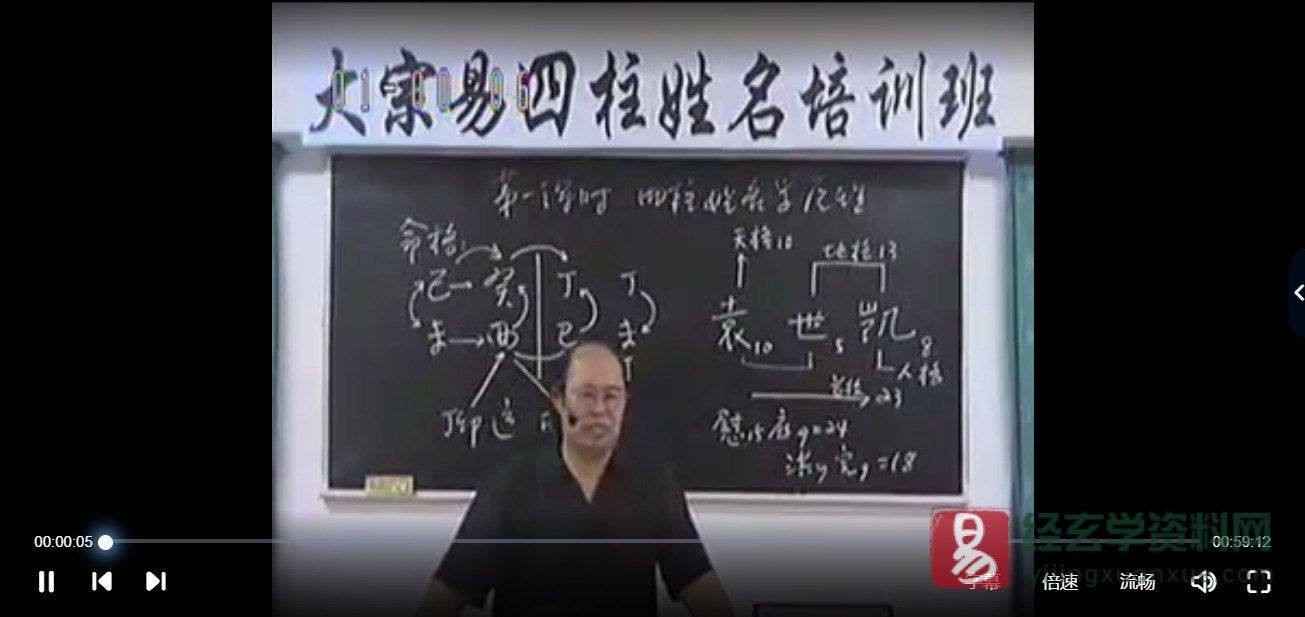 大宗易四柱姓名培训班
第一课时 四柱姓名学原理
命格:
天格10
地格13
己 癸 丁 丁
未 酉 巳 未
袁10 世5 凯8
人格
总格 23
丁卯运
=24
=18
易
经玄学资料网
yijingxuanxue.com
00:00:05
00:59:12
字幕 倍速 流畅